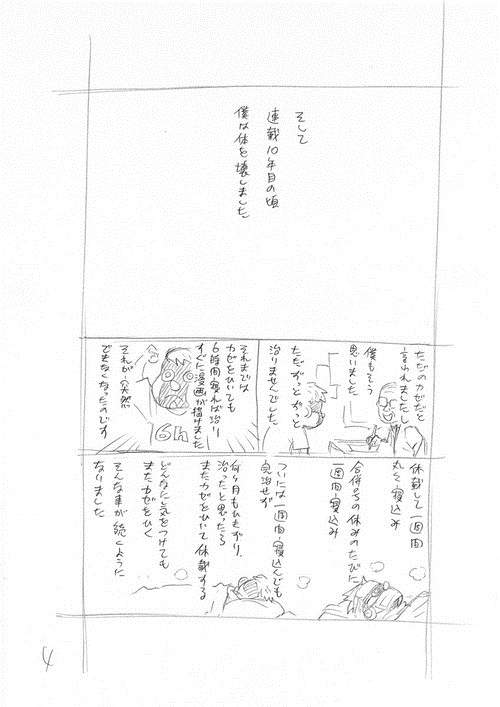 そして
連載10年目の頃
僕は体を壊しました
ただのカゼだと
言われましたし
僕もそう
思いました
ただ ずっとずっと
治りませんでした
それまでは
カゼをひいても
6時間寝れば治り
すぐに漫画が描けました
6h
それが突然
できなくなったのです
休載して一週間
丸々寝込み
合併号の休みのたびに
一週間寝込み
ついには一週間寝込んでも
完治せず
何ヶ月もひきずり、
治ったと思ったら
またカゼをひいて休載する
どんなに気をつけても
またカゼをひく
そんな事が続くように
なりました
4